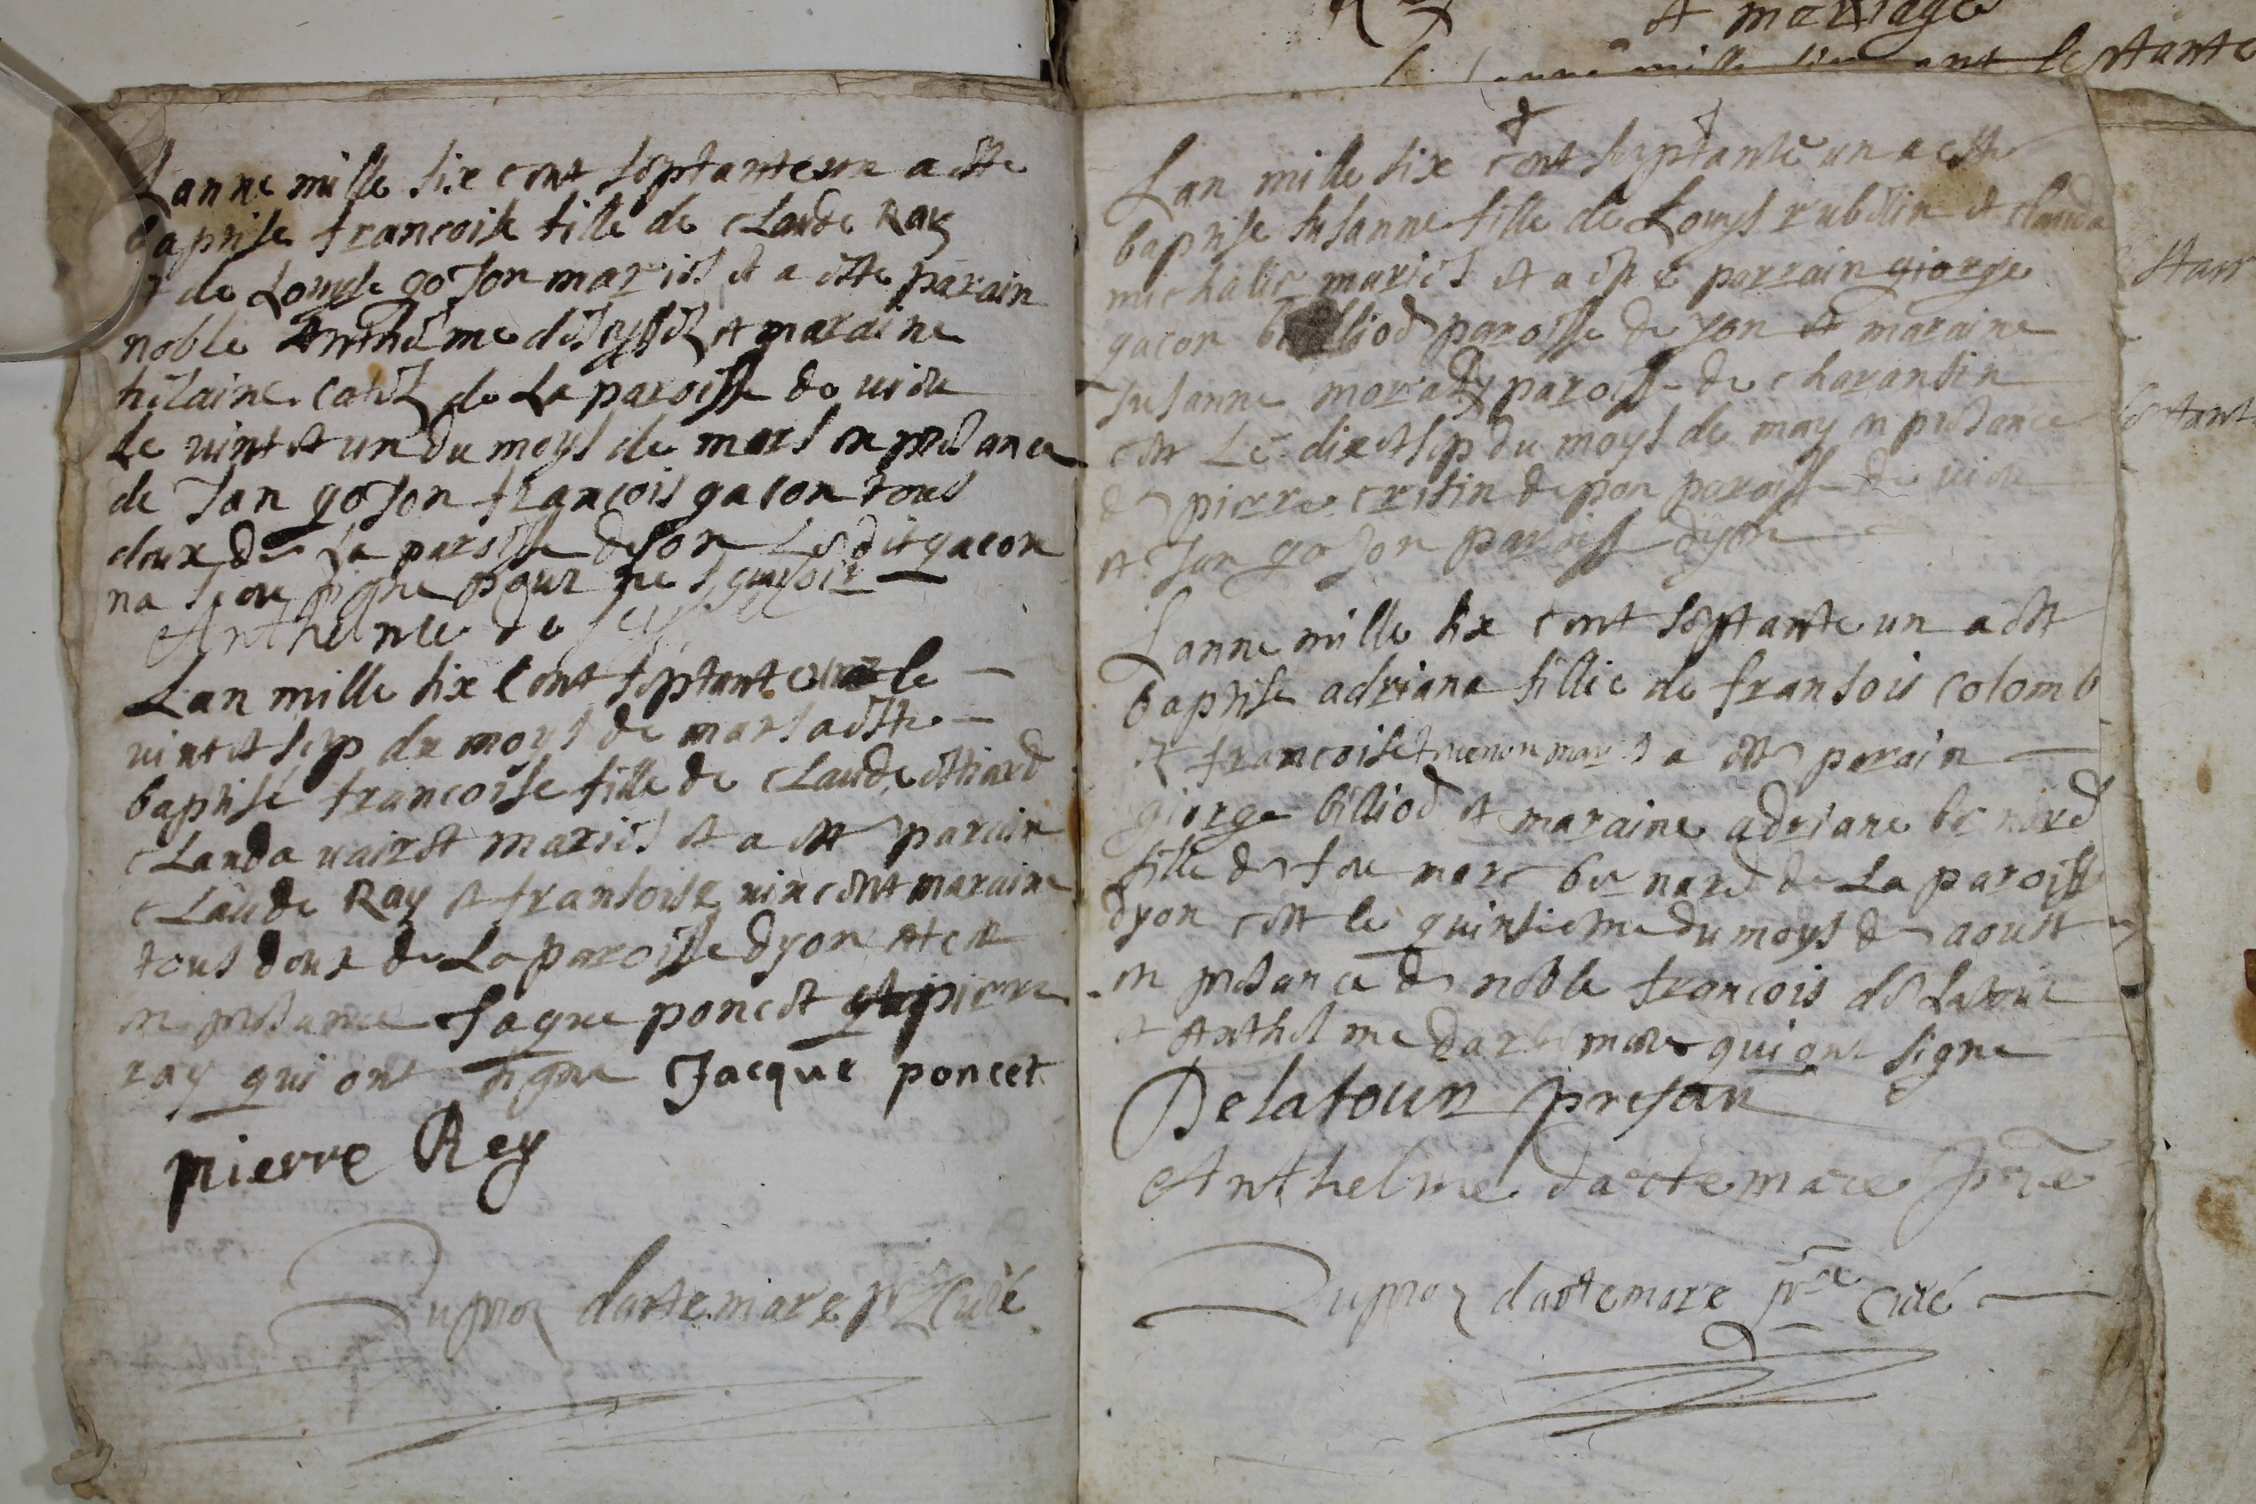 Lanne mille six cent septante un a este
baptise francoise fille de Claude Ray
et de Louyse goJon mariés et a este parain
noble Anthelme deseyssel et maraine
helaine catel de La paroisse de uieu
Le uint et un du moys de mars en presance
de Jan goJon francois gacon tous
deux de La paroisse dyon Le dit gacon
na seu signe pour ne scauoir
Anthelme de seyssel
Lan mille six Cent septante le
uint et sep du moys de mars a este
baptisé francoise fille de Claude
Clauda uairet mariés et a este parain
Claude Ray et fransoise uincent maraine
tous deux de La paroisse dyon et ce
en presance Jaque poncet et pierre
ray qui ont signe Jacque poncet
pierre Rey
Dupraz dartemare pre Curé
et mariage
Lanne mille six cent septante
Lan mille six cent septante un a este
baptise susanne fille de Louys rubelin et clauda
michalie mariés et a esté parrain giorge
gacon billiod paroisse de yon et maraine
susanne paroisse de charansin
cest Le dix et sep du moys de may en presance
de pierre cristin de pon paroisse de uieu
et Jan goJon paroisse dyon
Lanne mille six cent septante un a este
baptise adriana fillie de fransois colomb
et francoise mariés a este parain
giorge billiod et maraine adriane bernard
fille de feu marc bernard de La paroisse
dyon cest le quinsieme du moys de aoust
en presance de noble francois de Latour
et Anthelme dartemare qui ont signe
Delatour presan
Anthelme dartemare pre
Dupraz dartemare pre Curé